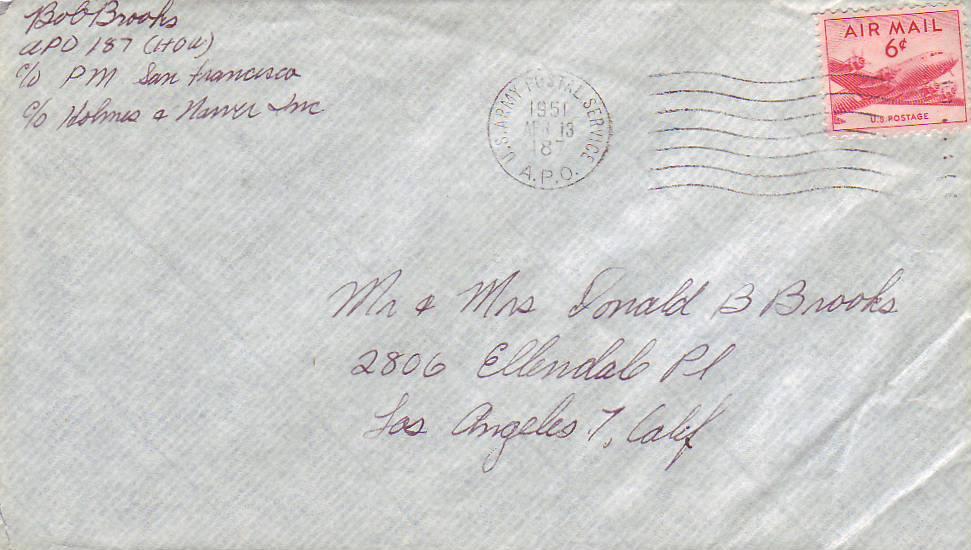 Bob Brooks
APO 187 (HOW)
c/o PM San Francisco
c/o Holmes & Narver Inc
U.S. ARMY POSTAL SERVICE
1951
APR 13
187
A.P.O.
AIR MAIL
6¢
U.S. POSTAGE
Mr & Mrs Donald B Brooks
2806 Ellendale Pl
Los Angeles 7, Calif